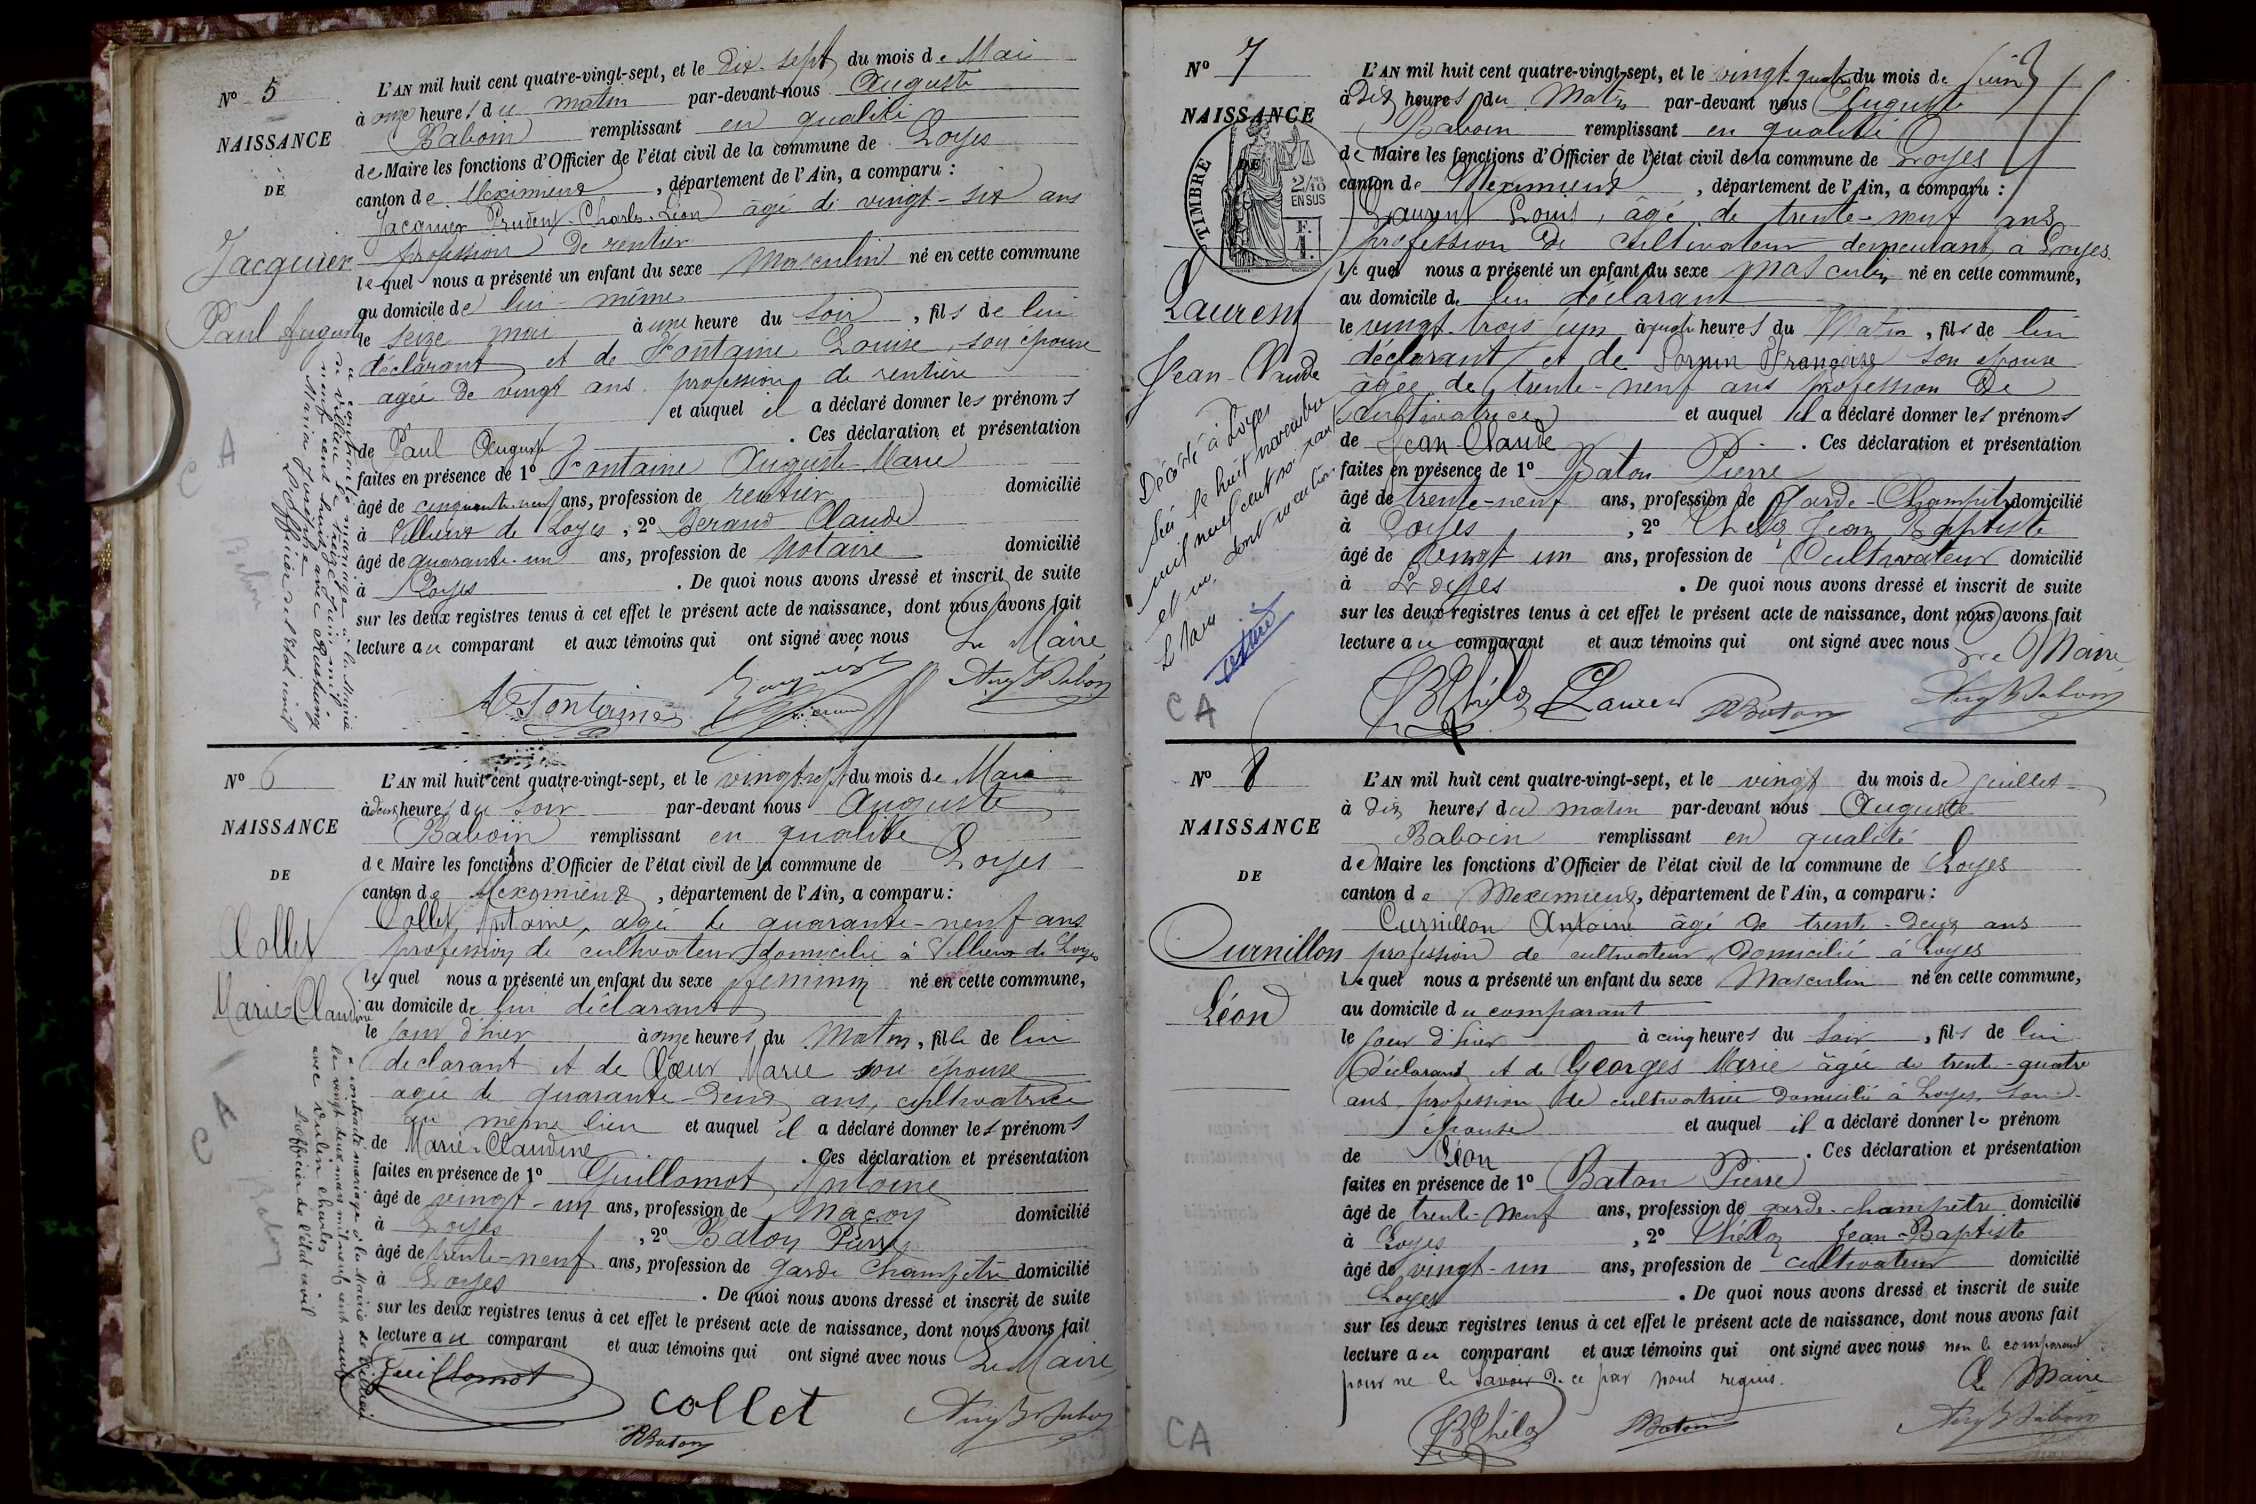 Nº 5
NAISSANCE
DE
Jacquier
Paul Auguste
L'AN mil huit cent quatre-vingt-sept, et le dix-sept du mois de Mai
à onze heures du matin par-devant nous Auguste
Baboin remplissant en qualité
de Maire les fonctions d'Officier de l'état civil de la commune de Loyes
canton de Meximieux, département de l'Ain, a comparu :
Jacquier Prudent-Charles-Léon âgé de vingt-six ans
profession de rentier
lequel nous a présenté un enfant du sexe Masculin né en cette commune
au domicile de lui-même
le seize mai à une heure du soir, fils de lui
déclarant et de Fontaine Louise, son épouse
agée de vingt ans. profession de rentière
et auquel il a déclaré donner les prénoms
de Paul Auguste. Ces déclaration et présentation
faites en présence de 1º Fontaine Auguste-Marie
âgé de cinquante-neuf ans, profession de rentier domicilié
à Villieux de Loyes, 2º Berand Claude
âgé de quarante-un ans, profession de notaire domicilié
à Loyes. De quoi nous avons dressé et inscrit de suite
sur les deux registres tenus à cet effet le présent acte de naissance, dont nous avons fait
lecture au comparant et aux témoins qui ont signé avec nous Le Maire
A. Fontaine
a contracté mariage à la Mairie
de Villieu le treize juin mil
neuf cent
L'officier de l'Etat civil
CA
Nº 6
NAISSANCE
DE
Collet
Marie-Claudine
L'AN mil huit cent quatre-vingt-sept, et le vingt-sept du mois de Mai
à deux heures du soir par-devant nous Auguste
Baboin remplissant en qualité
de Maire les fonctions d'Officier de l'état civil de la commune de Loyes
canton de Meximieux, département de l'Ain, a comparu :
Collet Antoine, agé de quarante-neuf ans
profession de cultivateur domicilié à Villieux de Loyes
lequel nous a présenté un enfant du sexe féminin né en cette commune,
au domicile de lui déclarant
le jour d'hier à onze heures du Matin, fille de lui
déclarant et de Cœur Marie son épouse
agée de quarante-deux ans, cultivatrice
au même lieu et auquel il a déclaré donner les prénoms
de Marie-Claudine. Ces déclaration et présentation
faites en présence de 1º Guillomot Antoine
âgé de vingt-un ans, profession de Maçon domicilié
à Loyes, 2º Baton Pierre
âgé de trente-neuf ans, profession de garde Champêtre domicilié
à Loyes. De quoi nous avons dressé et inscrit de suite
sur les deux registres tenus à cet effet le présent acte de naissance, dont nous avons fait
lecture au comparant et aux témoins qui ont signé avec nous Le Maire
Guillomot
collet
PBaton
a contracté mariage à la Mairie de Villieu
le vingt-deux mars mil neuf cent neuf
avec Dulin Charles
L'officier de l'état civil
CA
Nº 7
NAISSANCE
DE
TIMBRE
2/10
EN SUS
F.
1.
Laurent
Jean-Claude
L'AN mil huit cent quatre-vingt-sept, et le vingt-quatre du mois de juin
à dix heures du Matin par-devant nous Auguste
Baboin remplissant en qualité
de Maire les fonctions d'Officier de l'état civil de la commune de Loyes
canton de Meximieux, département de l'Ain, a comparu :
Laurent Louis, âgé de trente-neuf ans
profession de cultivateur demeurant à Loyes
lequel nous a présenté un enfant du sexe masculin né en cette commune,
au domicile de lui déclarant
le vingt-trois juin à quatre heures du Matin, fils de lui
déclarant et de Françoise son épouse
âgée de trente-neuf ans profession de
cultivatrice et auquel il a déclaré donner les prénoms
de Jean-Claude. Ces déclaration et présentation
faites en présence de 1º Baton Pierre
âgé de trente-neuf ans, profession de Garde-Champêtre domicilié
à Loyes, 2º Théloz Jean Baptiste
âgé de vingt un ans, profession de Cultivateur domicilié
à Loyes. De quoi nous avons dressé et inscrit de suite
sur les deux registres tenus à cet effet le présent acte de naissance, dont nous avons fait
lecture au comparant et aux témoins qui ont signé avec nous Le Maire
JBThéloz Laurent PBaton
Décédé à Loyes
le huit novembre
mil neuf cent soixante
et un, dont mention
Le Maire
CA
Nº 8
NAISSANCE
DE
Curnillon
Léon
L'AN mil huit cent quatre-vingt-sept, et le vingt du mois de juillet
à dix heures du matin par-devant nous Auguste
Baboin remplissant en qualité
de Maire les fonctions d'Officier de l'état civil de la commune de Loyes
canton de Meximieux, département de l'Ain, a comparu :
Curnillon Antoine âgé de trente-deux ans
profession de cultivateur, domicilié à Loyes
lequel nous a présenté un enfant du sexe Masculin né en cette commune,
au domicile du comparant
le jour d'hier à cinq heures du soir, fils de lui
Déclarant et de Georges Marie âgée de trente-quatre
ans, profession de cultivatrice domiciliée à Loyes, son
épouse et auquel il a déclaré donner le prénom
de Léon. Ces déclaration et présentation
faites en présence de 1º Baton Pierre
âgé de trente-neuf ans, profession de garde-champêtre domicilié
à Loyes, 2º Théloz Jean-Baptiste
âgé de vingt-un ans, profession de cultivateur domicilié
Loyes. De quoi nous avons dressé et inscrit de suite
sur les deux registres tenus à cet effet le présent acte de naissance, dont nous avons fait
lecture au comparant et aux témoins qui ont signé avec nous non le comparant
pour ne le savoir de ce par nous requis.
Le Maire
JBThéloz PBaton
CA